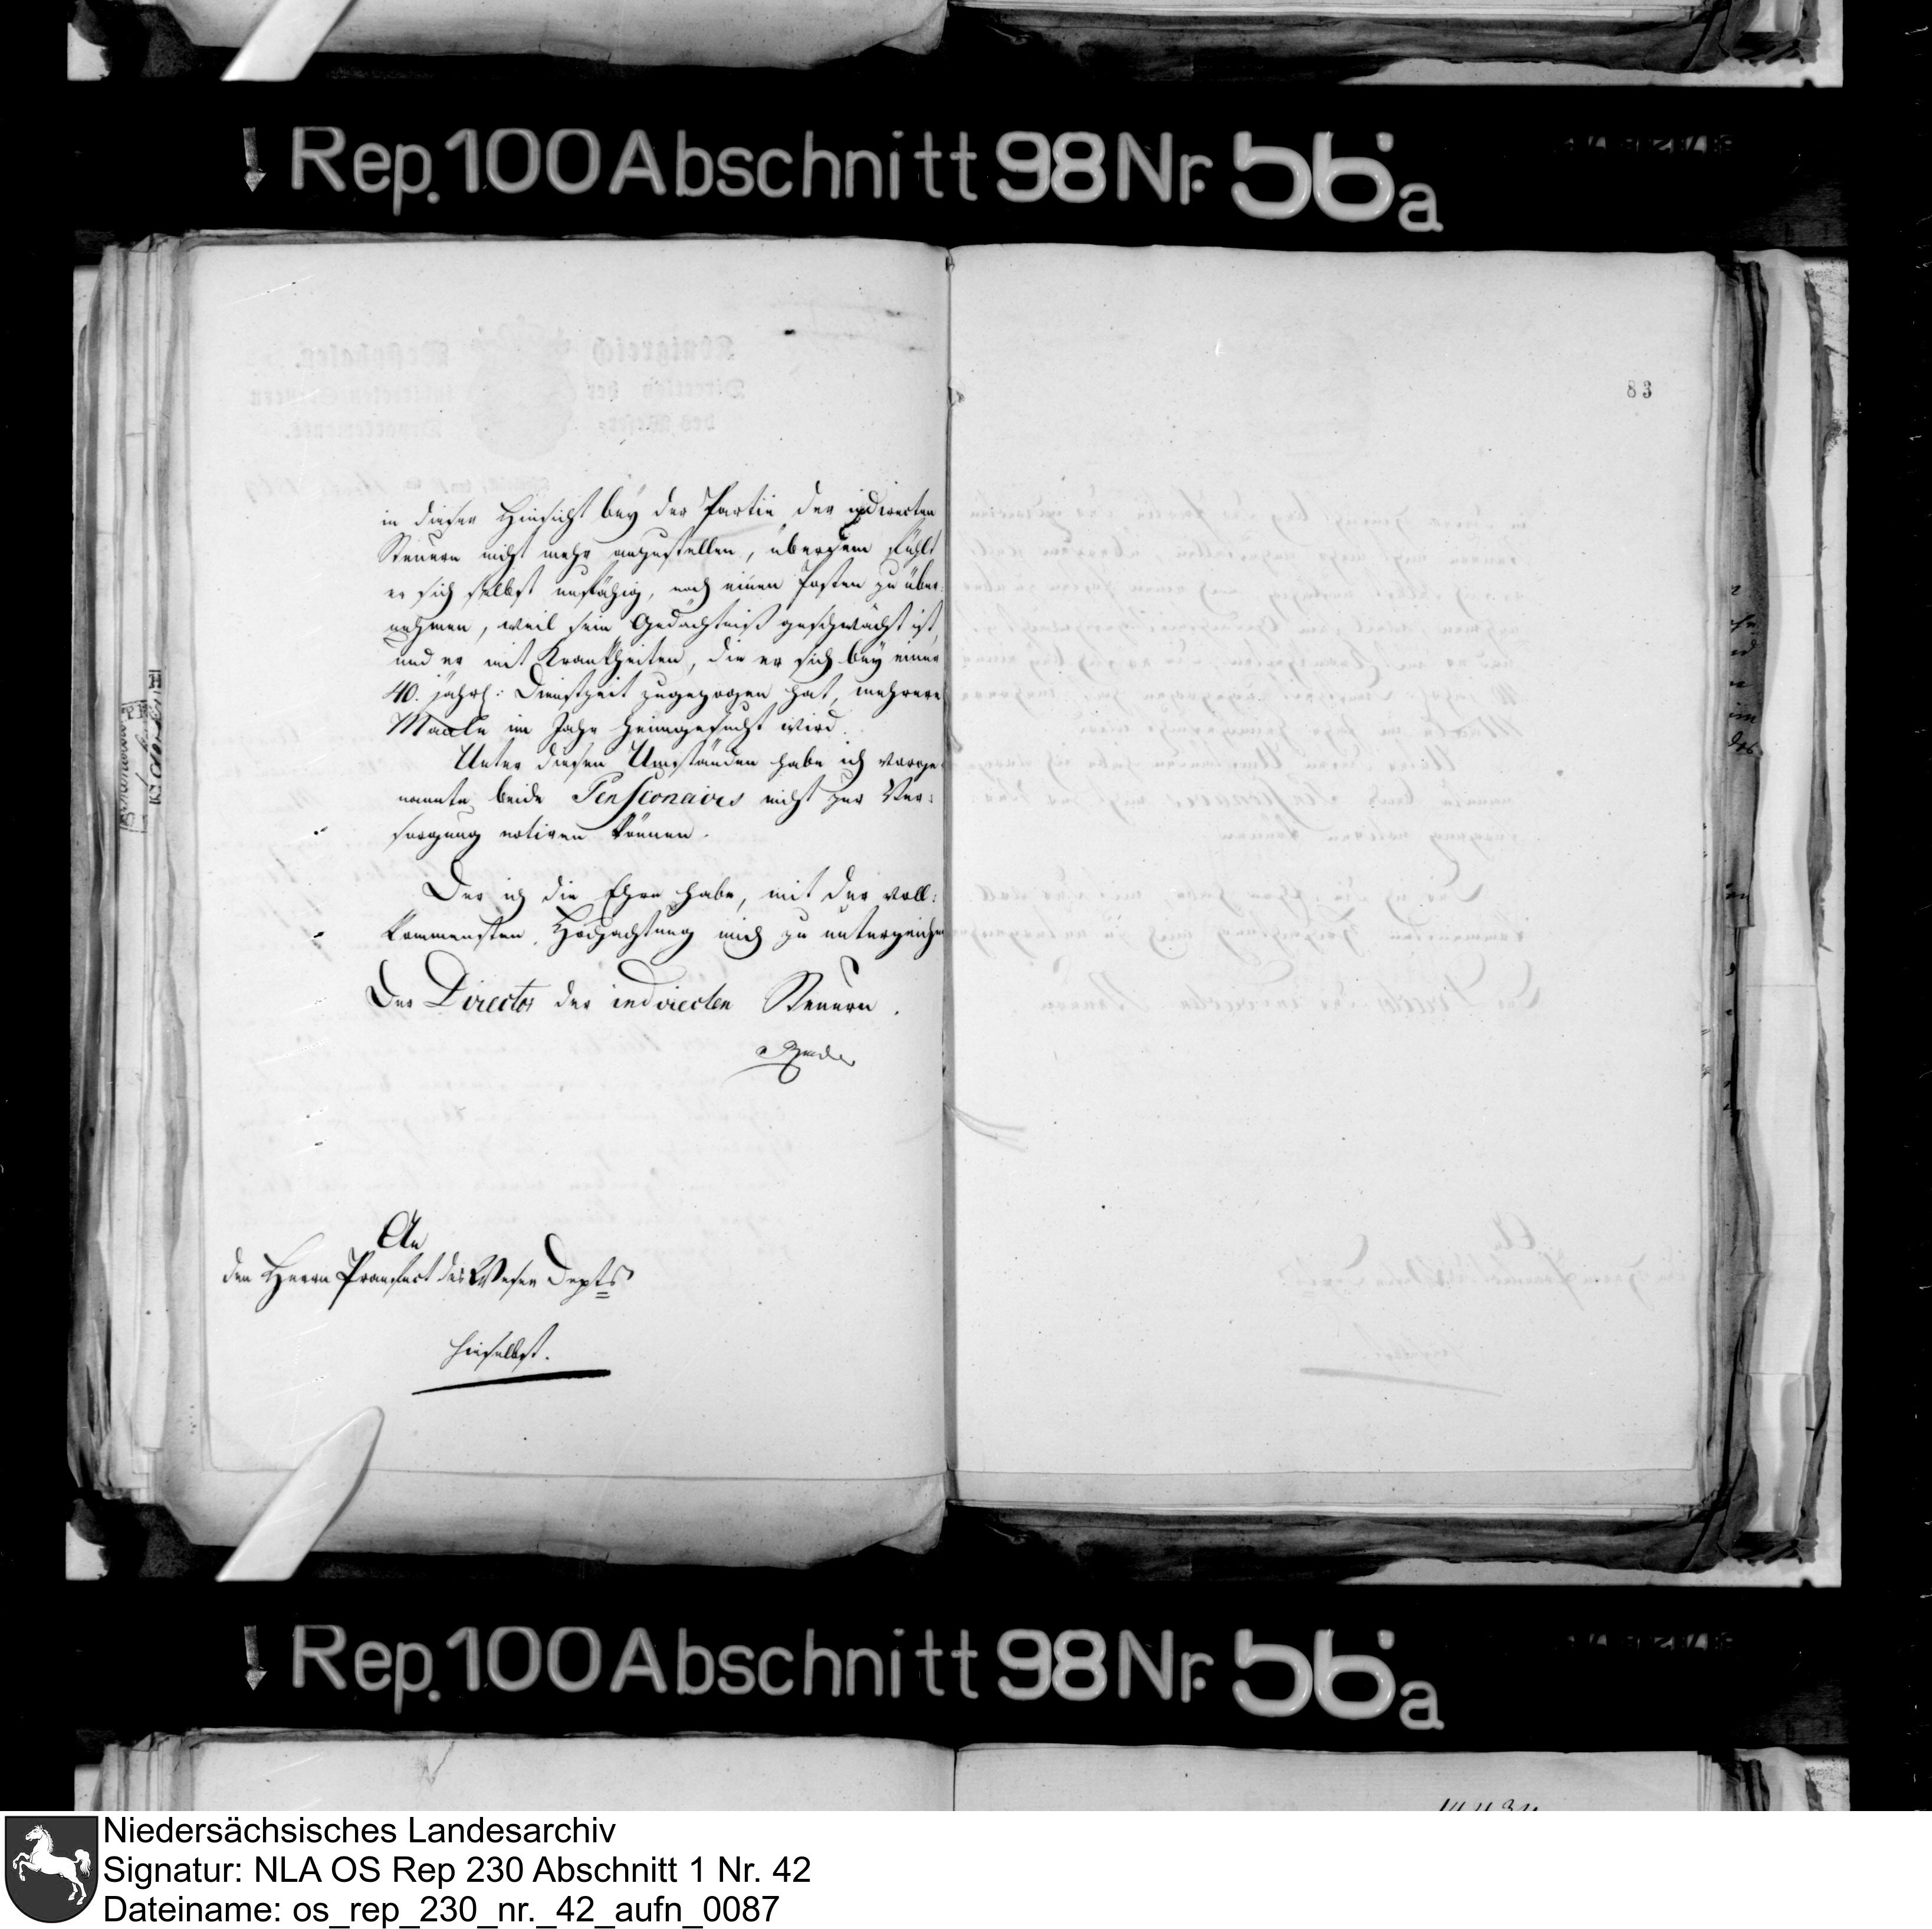 Rep. 100 Abschnitt 98 Nr. 56a
83
in dieser Hinsicht bey der Partie der indirecten
Steuern nicht mehr anzustellen, überdem fühlt
er sich selbst unfähig, noch einen Posten zu über-
nehmen, weil sein Gedächtniß geschwächt ist,
und er mit Krankheiten, die er sich bey einer
40. jährl: Dienstzeit zugezogen hat, mehrere
Maale im Jahr heimgesucht wird.
Unter diesen Umständen habe ich vorge-
nannte beide Pensionairs nicht zur Ver-
sorgung notiren können.
Der ich die Ehre habe, mit der voll-
kommensten Hochachtung mich zu unterzeichnen
Der Director der indirecten Steuern.
An
den Herrn Praefect des Weser Depts
hieselbst.
Rep. 100 Abschnitt 98 Nr. 56a
Niedersächsisches Landesarchiv
Signatur: NLA OS Rep 230 Abschnitt 1 Nr. 42
Dateiname: os_rep_230_nr._42_aufn_0087